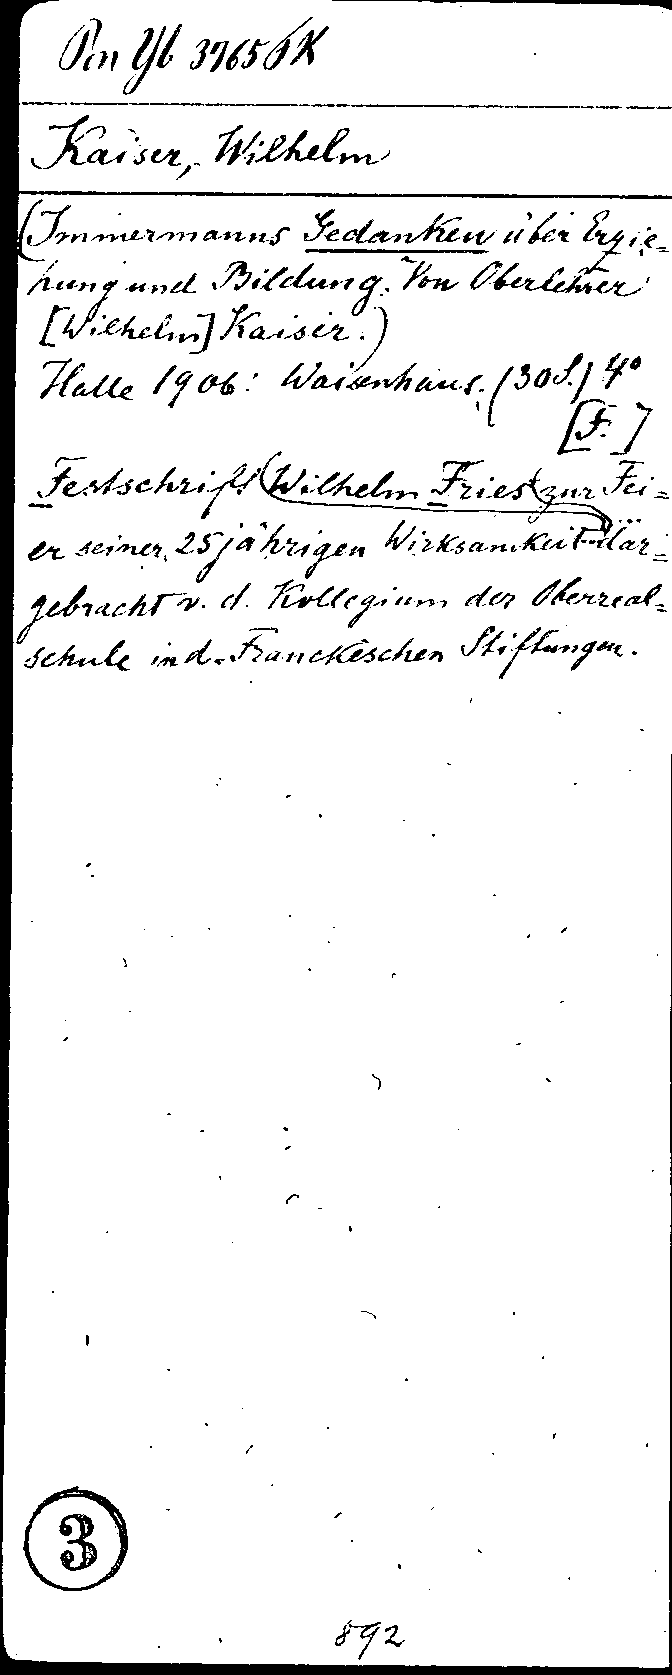 Pon Yb 3765 PK
Kaiser, Wilhelm
(Immermanns Gedanken über Erzie-
hung und Bildung. Von Oberlehrer
[Wilhelm] Kaiser.)
Halle 1906: Waisenhaus. (30 S.) 4°
[F.]
Festschrift (Wilhelm Fries) zur Fei-
er seiner 25jährigen Wirksamkeit dar-
gebracht v. d. Kollegium der Oberreal-
schule in d. Franckeschen Stiftungen.
3
892